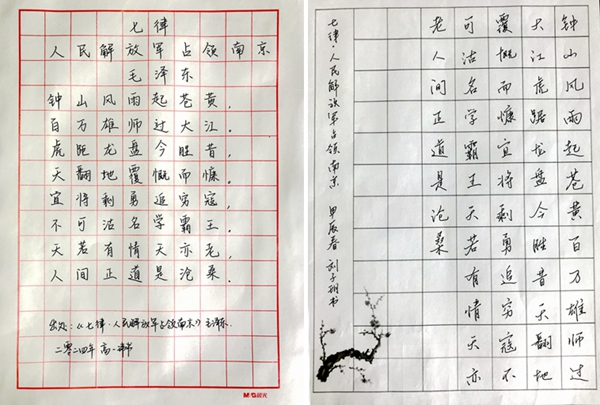 七律
人民解放军占领南京
毛泽东
钟山风雨起苍黄，
百万雄师过大江。
虎踞龙盘今胜昔，
天翻地覆慨而慷。
宜将剩勇追穷寇，
不可沽名学霸王。
天若有情天亦老，
人间正道是沧桑。
出处：《七律·人民解放军占领南京》毛泽东
二零二四年 高一
M&G 晨光
钟山风雨起苍黄百万雄师过
大江虎踞龙盘今胜昔天翻地
覆慨而慷宜将剩勇追穷寇不
可沽名学霸王天若有情天亦
老人间正道是沧桑
七律·人民解放军占领南京 甲辰春 刘子书